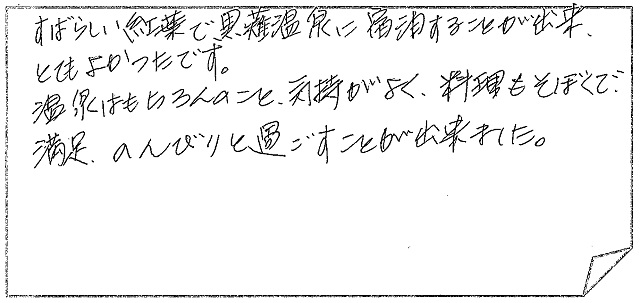 すばらしい紅葉で奥薙温泉に宿泊することが出来、
とてもよかったです。
温泉はもちろんのこと、気持がよく、料理もそぼくで
満足、のんびりと過ごすことが出来ました。